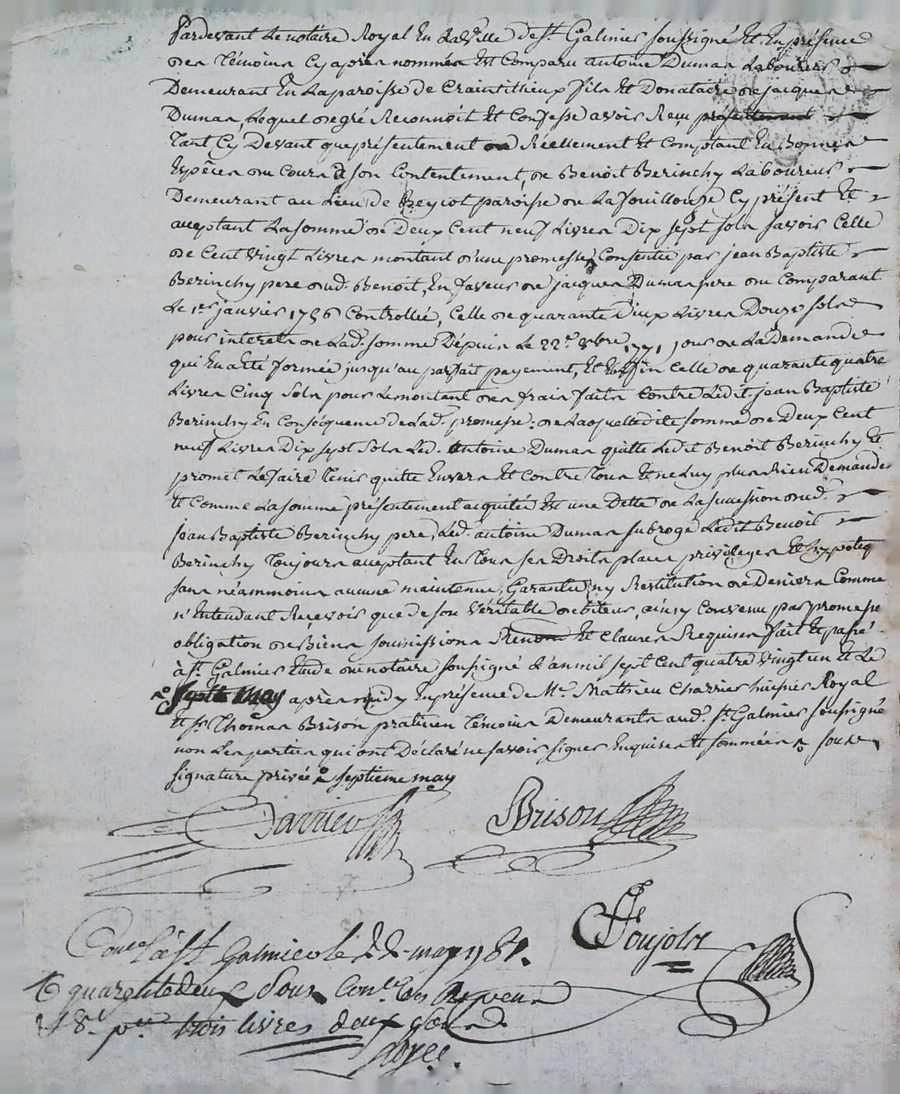 Pardevant Le notaire Royal En La ville de st. Galmier soussigné Et En présence
des témoins Cy après nommés Est Comparu antoine Dumas Laboureur
Demeurant En La paroisse de Craintillieux fils Et Donataire de jacques
Dumas, Lequel de gré Reconnoit Et Confesse avoir Reçu présentement
tant Cy Devant que présentement Réellement Et Comptant En Bonnes
Espèces du Cours à son Contentement, de Benoit Berinchy Laboureur
Demeurant au Lieu de paroisse de La fouillouse Cy présent Et
acceptant La somme de Deux Cent neuf Livres Dix sept sols savoir Celle
de Cent vingt Livres montant d'une promesse Consentie par jean Baptiste
Berinchy pere dud. Benoit, En faveur de jacques Dumas pere du Comparant
Le 1er janvier 1756 Controllée, Celle de quarante Livres Douze sols
pour interets de Lad. somme Depuis Le 22e. 8bre 1771 jour de La Demande
qui En a Eté formée jusqu'au parfait payement, Et Enfin Celle de quarante quatre
Livres Cinq sols pour Le montant des frais faits Contre Ledit jean Baptiste
Berinchy En Conséquence de Lad. promesse. de Laquelle dite somme de Deux Cent
neuf Livres Dix sept sols Led. antoine Dumas quitte Ledit Benoit Berinchy Et
promet Le faire tenir quitte Envers Et Contre tous Et ne Luy plus Rien Demander
Et Comme La somme présentement acquitée Est une Dette de La succession dud.
jean Baptiste Berinchy pere, Led. antoine Dumas subroge Ledit Benoit
Berinchy toujours acceptant En tous ses Droits place privileges Et hypoteq
sans néammoins aucune maintenue, Garantie, ny Restitution de Deniers Comme
n'Entendant Recevoir que de son véritable débiteur, ainsy Convenu par promesse
obligation de Biens soumissions Renon Et Clauses Requises fait Et passé
à st. Galmier Etude du notaire soussigné L'an mil sept Cent quatre vingt un Et Le
Sept may après midy En présence de Me. Mathieu Charrier huissier Royal
Et sr. Thomas Brison praticien témoins Demeurants aud. st. Galmier soussignés
non Les parties qui ont Déclaré ne savoir signer Enquises Et sommées sous
signature privée septieme may
Brison
Poujols
Conlé à St Galmier le 22 may 1781.
quarente deux Sous
trois livres deux